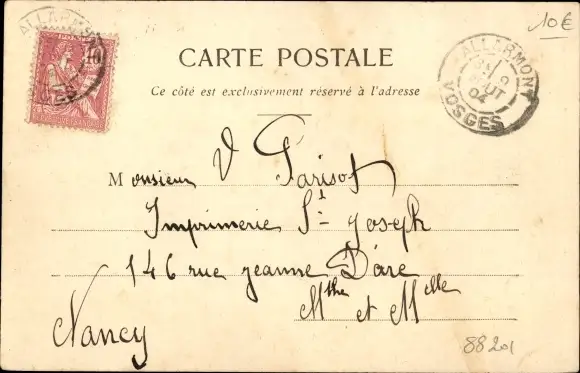 10€
ALLARMONT
10
CARTE POSTALE
ALLARMONT
AOUT
04
VOSGES
Ce côté est exclusivement réservé à l'adresse
Monsieur V Parisot
Imprimerie St- Joseph
146 rue Jeanne D'arc
Mthe et Mlle
Nancy
88201